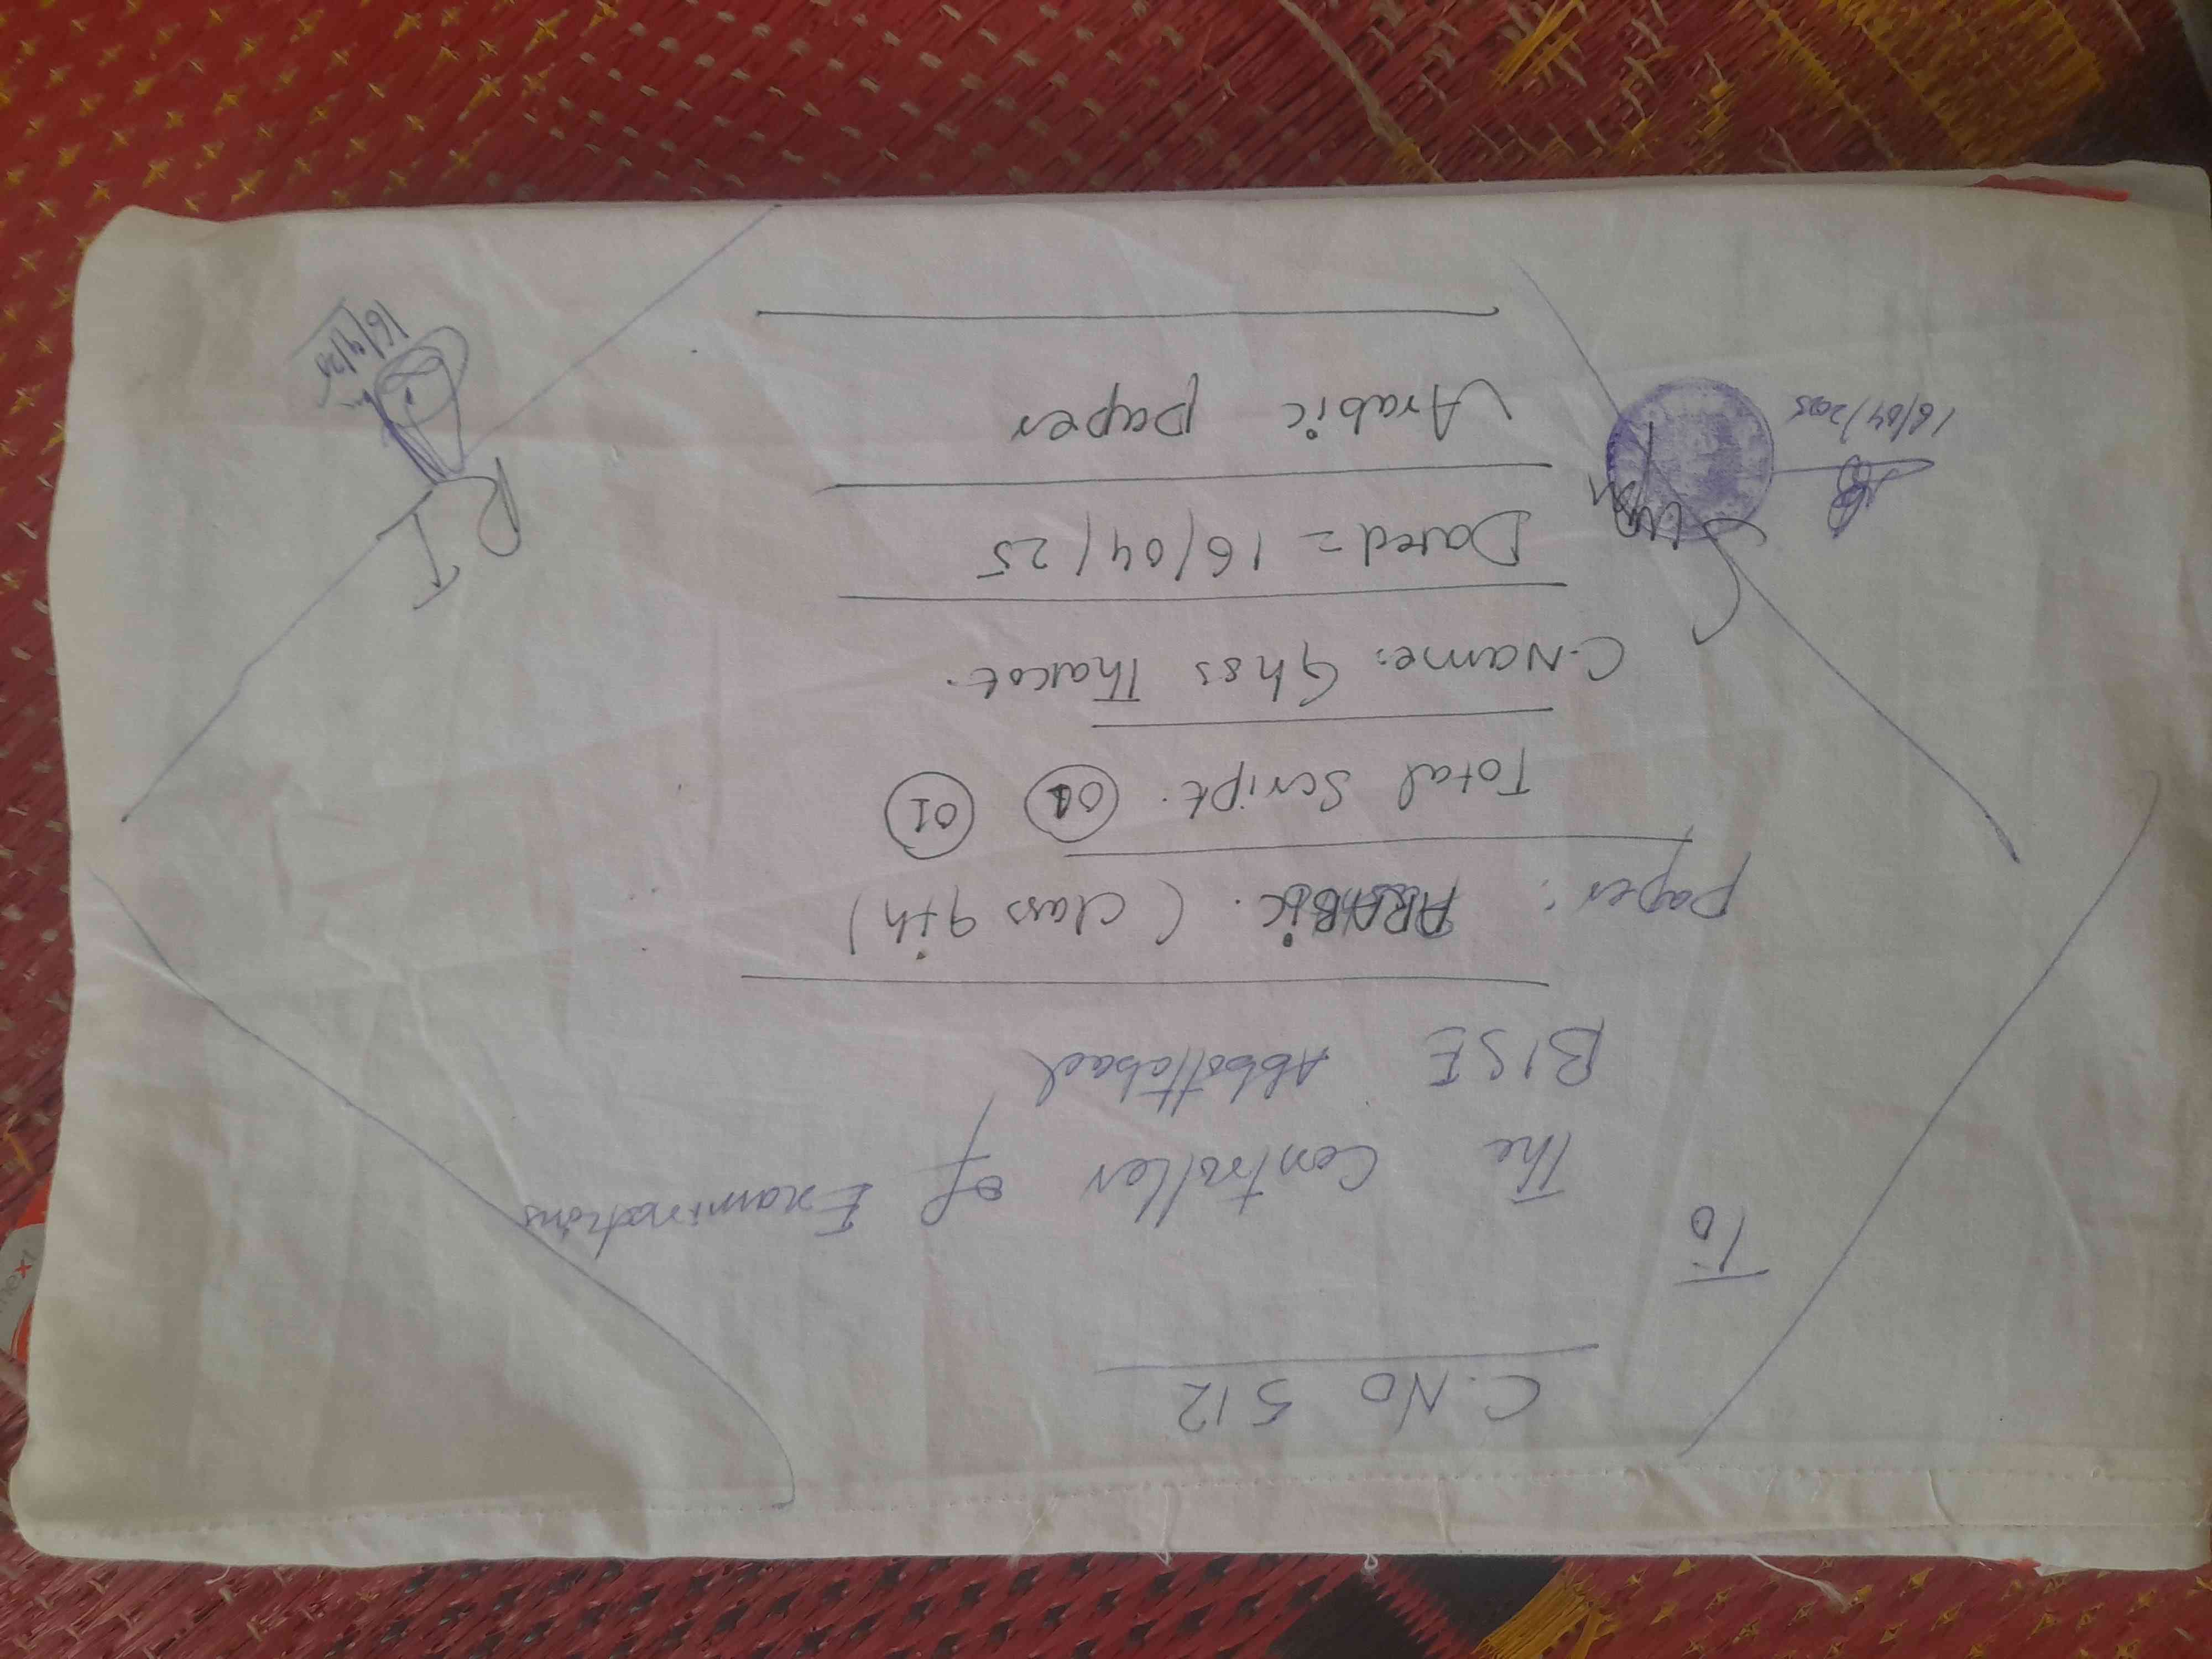 C.No 512
To
The Controller of Examinations
BISE Abbottabad
Paper: ARABiC. (Class 9th)
Total Script. 01 01
C.Name: Ghss Thakot.
Dated = 16/04/25
Arabic paper
Supdt
16/04/2025
RI
16/4/25